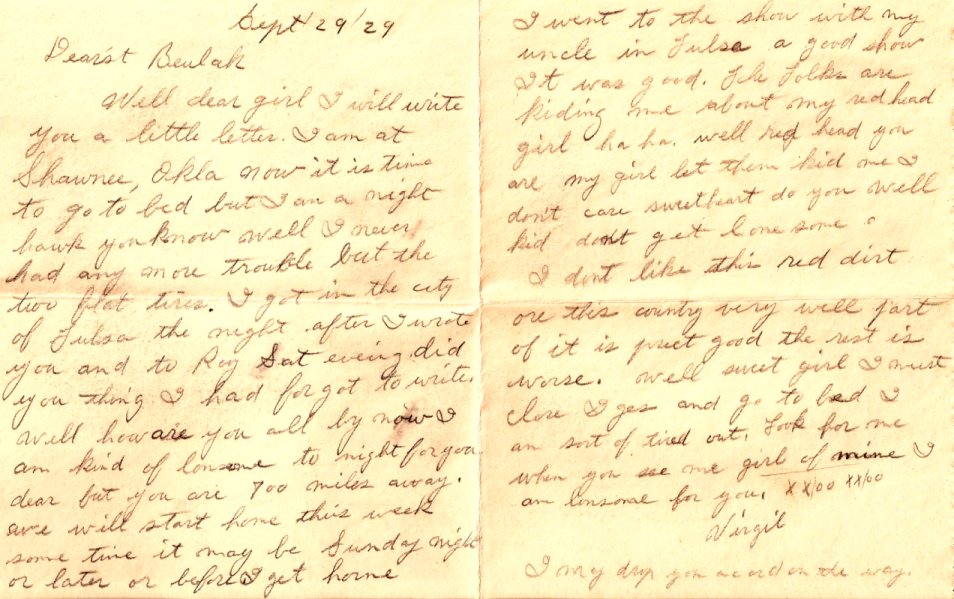 Sept 29/29
Dearst Beulah
Well dear girl I will write
you a little letter. I am at
Shawnee, Okla now it is time
to go to bed but I am a night
hawk you know well I never
had any more trouble but the
two flat tires. I got in the city
of Tulsa the night after I wrote
you and to Roy Sat eveing did
you thing I had forgot to write.
Well how are you all by now I
am kind of lonsome to night for you
dear but you are 700 miles away.
we will start home this week
some time it may be Sunday night
or later or before I get home
I went to the show with my
uncle in Tulsa a good show
It was good. The Folks are
kiding me about my red head
girl ha ha. well red head you
are my girl let them kid me I
don't care sweetheart do you well
kid dont get lonesome
I dont like this red dirt
ore this country very well part
of it is prect good the rest is
worse. Well sweet girl I must
close I ges and go to bed I
am sort of tired out. Look for me
when you see me girl of mine I
am lonsome for you. XX/00 XX/00
Virgil
I my drop you a card on the way.